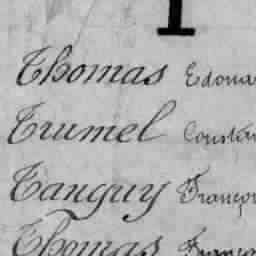 T
Thomas Edoua
Trumel Constan
Tanguy Franço
Thomas Franço